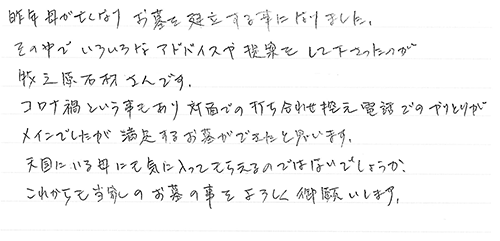 昨年母が亡くなり お墓を建立する事になりました。
その中で いろいろな アドバイスや 提案を して下さったのが
牧之原石材さんです。
コロナ禍という事もあり 対面での打ち合わせ控え 電話でのやりとりが
メインでしたが 満足するお墓ができたと思います。
天国にいる母にも気に入ってもらえるのではないでしょうか。
これからも当家のお墓の事をよろしく御願いします。